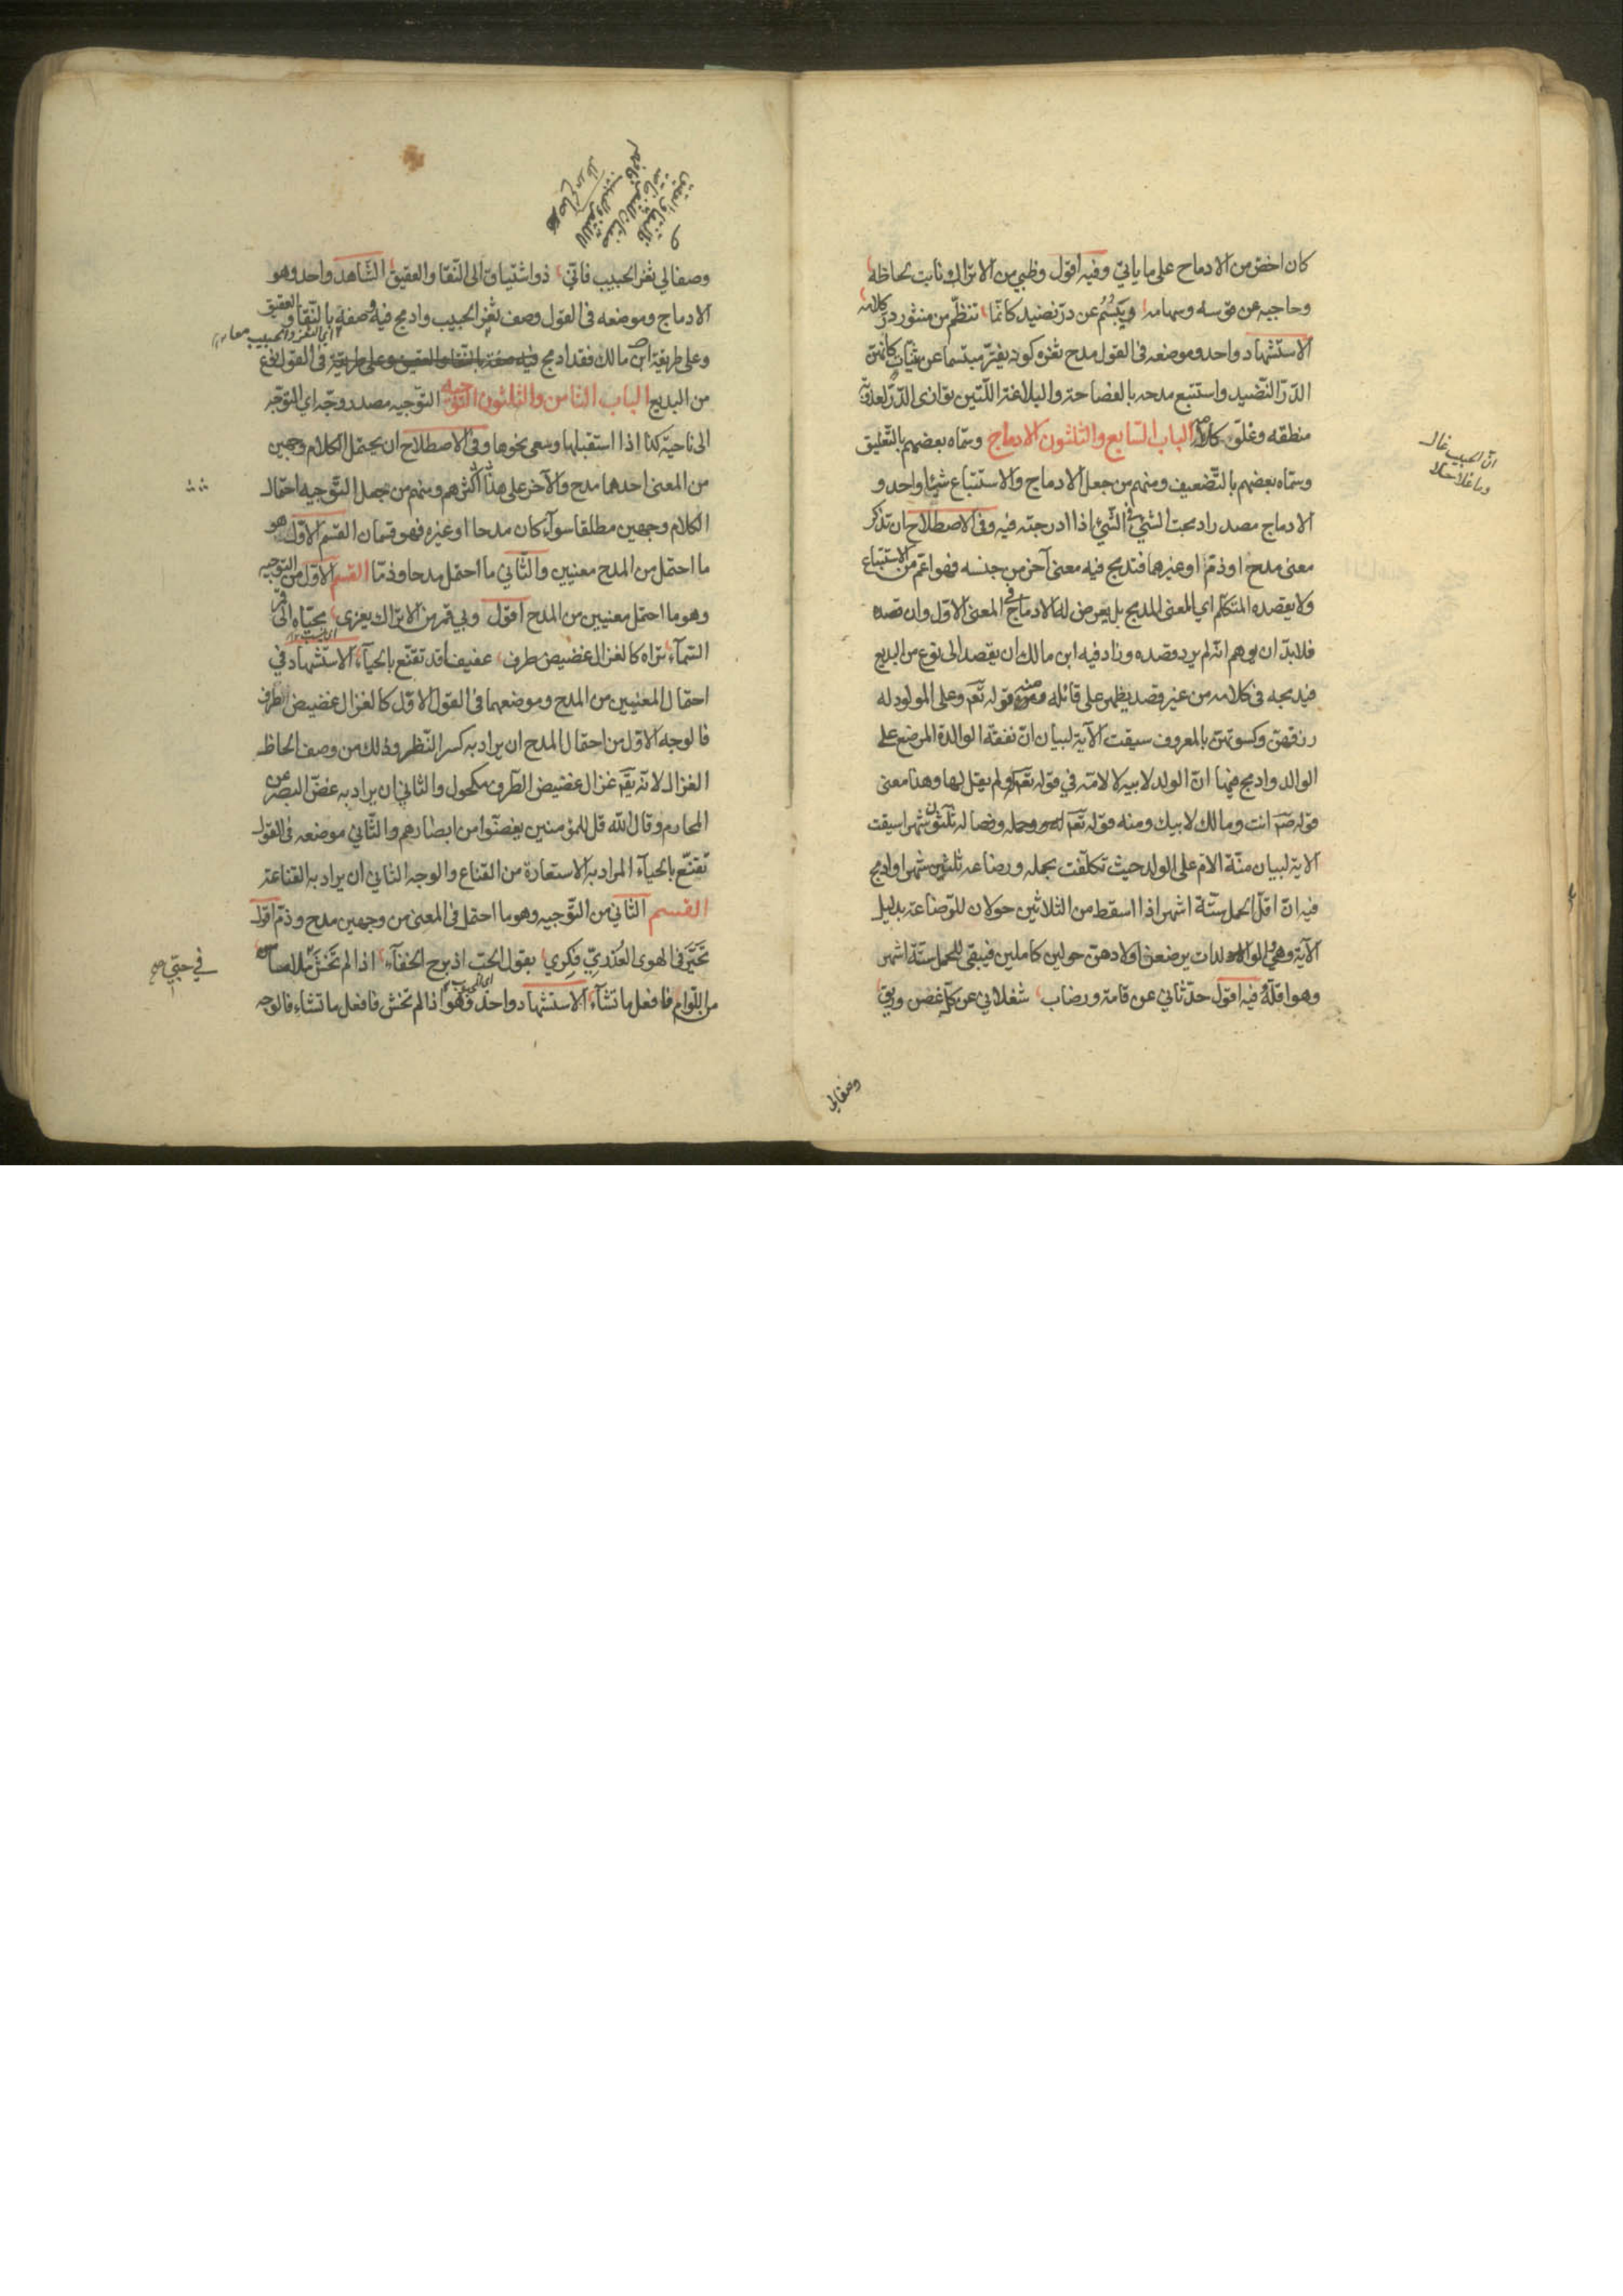 كان اخصّ من الادماج على ما ياتي وفيه اقول وظبي من الاتراك نابت لحاظه
وحاجبه عن قوسه وسهامه ويَبْسُمُ عن درّ نضيد كانّما تنظّم من منثور درّ كلامه
الاستشهاد واحد وموضعه في القول مدح ثغره كونه يفترّ مبتسما عن ثنايا كانهنّ
الدّرّ النّضيد واستتبع مدحه بالفصاحة والبلاغة اللّتين توازى الدّرّ لعذوبة
منطقه وغلوّ كلامه الباب السّابع والثلثون الادماج وسمّاه بعضهم بالتّعليق
وسمّاه بعضهم بالتّضعيف ومنهم من جعل الادماج والاستتباع شيئا واحد و
الادماج مصدر ادمجت الشيئ في الشّيئ اذا ادرجته فيه وفي الاصطلاح ان تذكر
معنى مدح او ذمّ او غيرهما فتدمج فيه معنى آخر من جنسه فهو اعمّ من الاستتباع
ولا يقصده المتكلّم اي المعنى المدمج بل يعرض له الادماج في المعنى الاوّل وان قصده
فلا بدّ ان يوهم انّه لم يرد قصده وزاد فيه ابن مالك ان يقصد الى نوع من البديع
فيدمجه في كلامه من غير قصد يظهر على قائله ومنه قوله تعَ وعلى المولود له
رزقهنّ وكسوتهنّ بالمعروف سيقت الآية لبيان انّ نفقة الوالدة المرضع على
الوالد وادمج فيها انّ الولد لابيه لا لامّه في قوله تعَ له ولم يقل لها وهذا معنى
قوله صَم انت ومالك لابيك ومنه قوله تعَ وحمله وفصاله ثلثون شهرا سيقت
الاية لبيان منّة الامّ على الولد حيث تكلّفت بحمله ورضاعه ثلثين شهرا وادمج
فيه انّ اقلّ الحمل ستّة اشهر اذا اسقط من الثلاثين حولان للرّضاعة بدليل
الآية وهي والوالدات يرضعن اولادهنّ حولين كاملين فيبقى للحمل ستّة اشهر
وهو اقلّه وفيه اقول حدّثاني عن قامة ورضاب شغلاني عن كلّ غصن وريق
انّ الحبيب غال
وما غلا حلا
وصفا لي
وصفا لي ثغر الحبيب فانّي ذو اشتياق الى النّقا والعقيق الشّاهد واحد وهو
الادماج وموضعه في القول وصف ثغر الحبيب وادمج فيه وصفه بالنّقا والعقيق
اي الثغر والحبيب معا
وعلى طريقة ابن مالك فقد ادمج في القول نوع
من البديع الباب الثامن والثلثون التّوجيه التوجيه مصدر وجّه اي التوجّه
الى ناحية كذا اذا استقبلها وسعى نحوها وفي الاصطلاح ان يحتمل الكلام وجهين
من المعنى احدهما مدح والآخر على هذا اكثرهم ومنهم من جعل التّوجيه احتمال
الكلام وجهين مطلقا سوآء كان مدحا او غيره فهو قسمان القسم الاوّل هو
ما احتمل من المدح معنيين والثّاني ما احتمل مدحا وذمّا القسم الاوّل من التوجيه
وهو ما احتمل معنيين من المدح اقول وبي قمر من الاتراك يعزى بحيّاه الى قمر
السّمآء تراه كالغزال غضيض طرف عفيفا قد تقنّع بالحيآء الاستشهاد في
احتمال المعنيين من المدح وموضعهما في القول الاوّل كالغزال غضيض الطرف
فالوجه الاوّل من احتمال المدح ان يراد به كسر النّظر وذلك من وصف الحاظ
الغزال لانّه يقَ غزال غضيض الطّرف مكحول والثاني ان يراد به غضّ البصر عن
المحارم وقال اللّه قل للمؤمنين يغضّوا من ابصارهم والثّاني موضعه في القول
تقنّع بالحيآء المراد به الاستعارة من القناع والوجه الثاني ان يراد به القناعة
القسم الثّاني من التّوجيه وهو ما احتمل في المعنى من وجهين مدح وذمّ اقول
تَحَيَّرَ في الهوى العُذريّ فِكري يقول الحبّ اذ برح الخفآء اذا لم تَخشَ
في حبّي صح
من اللّوام فافعل ما تشآء الاستشهاد واحد وهو اذا لم تخش فافعل ما تشاء فالوجه